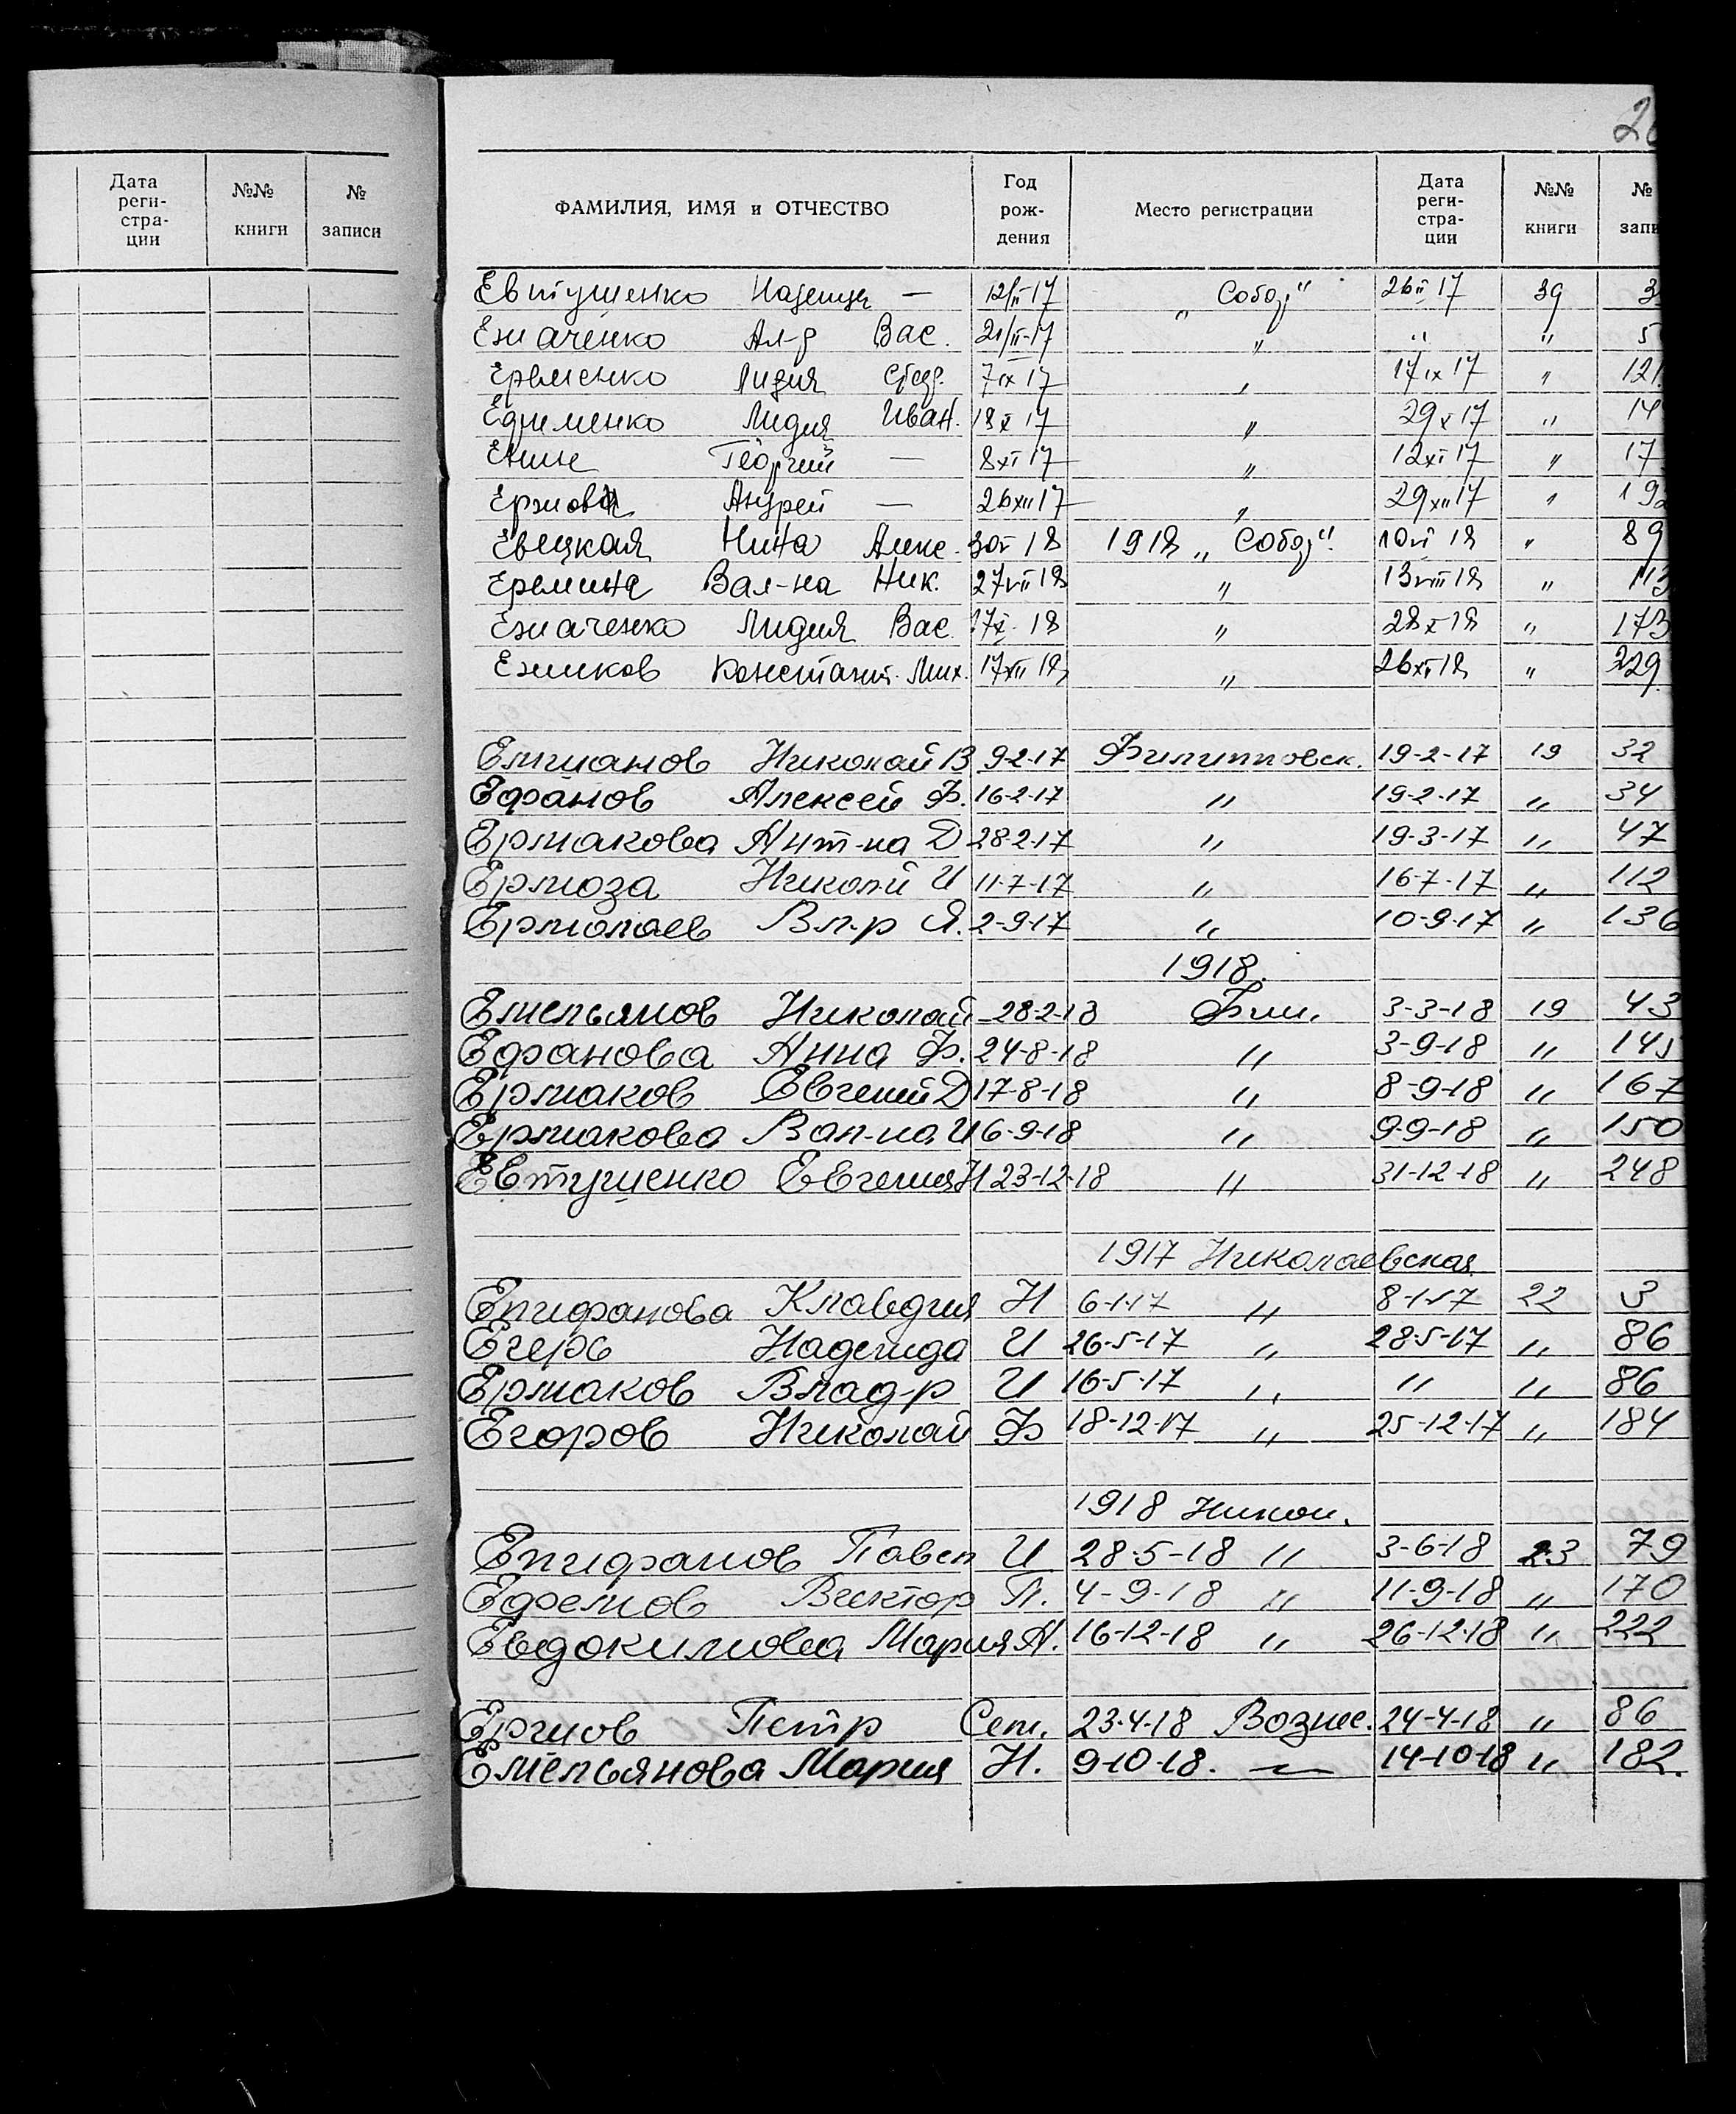 Дата реги- стра- ции №№ книги № записи
26
ФАМИЛИЯ, ИМЯ и ОТЧЕСТВО Год рож- дения Место регистрации Дата реги- стра- ции №№ книги № запи
Евтушенко Надежда — 12/II-17 „ Собор" 26 II 17 39 3
Ал-р Вас. 21/II-17 „ „ „ 5
Еременко Лидия 7 IX 17 „ 17 IX 17 „ 121
Ефименко Лидия Иван. 18 X 17 „ 29 X 17 „ 14
Енин Георгий — 8 XI 17 „ 12 XI 17 „ 17
Андрей — 26 XII 17 „ 29 XII 17 „ 192
Евецкая Нина Алекс. 30 V 18 1918 „ Собор". 10 VI 18 „ 89
Еремина Вал-на Ник. 27 VII 18 „ 13 VIII 18 „ 113
Лидия Вас. 17 X 18 „ 28 X 18 „ 173
Константин. Мих. 17 XII 18 „ 26 XII 18 „ 229.
Николай В 9-2-17 Филипповск. 19-2-17 19 32
Ефанов Алексей Ф. 16-2-17 „ 19-2-17 „ 34
Ермакова Ант-на Д 28-2-17 „ 19-3-17 „ 47
Ермоза И 11-7-17 „ 16-7-17 „ 112
Ермолаев Вл-р Я. 2-9-17 „ 10-9-17 „ 136
1918.
Емельянов Николай 28-2-18 Фил. 3-3-18 19 43
Ефанова Анна Ф. 24-8-18 „ 3-9-18 „ 145
Ермаков Евгений Д 17-8-18 „ 8-9-18 „ 167
Ермакова Вал-на И 6-9-18 „ 9-9-18 „ 150
Евтушенко Евгения Н 23-12-18 „ 31-12-18 „ 248
1917 Николаевская
Епифанова Клавдия Н 6-1-17 „ 8-1-17 22 3
Егерь Надежда И 26-5-17 „ 28-5-17 „ 86
Ермаков Влад-р И 16-5-17 „ „ „ 86
Егоров Николай Ф 18-12-17 „ 25-12-17 „ 184
1918 Никол.
Епифанов Павел И 28-5-18 „ 3-6-18 23 79
Ефемов Виктор П. 4-9-18 „ 11-9-18 „ 170
Евдокимова Мария А. 16-12-18 „ 26-12-18 „ 222
Петр Сем. 23-4-18 Вознес. 24-4-18 „ 86
Емельянова Мария Н. 9-10-18. — 14-10-18 „ 182.